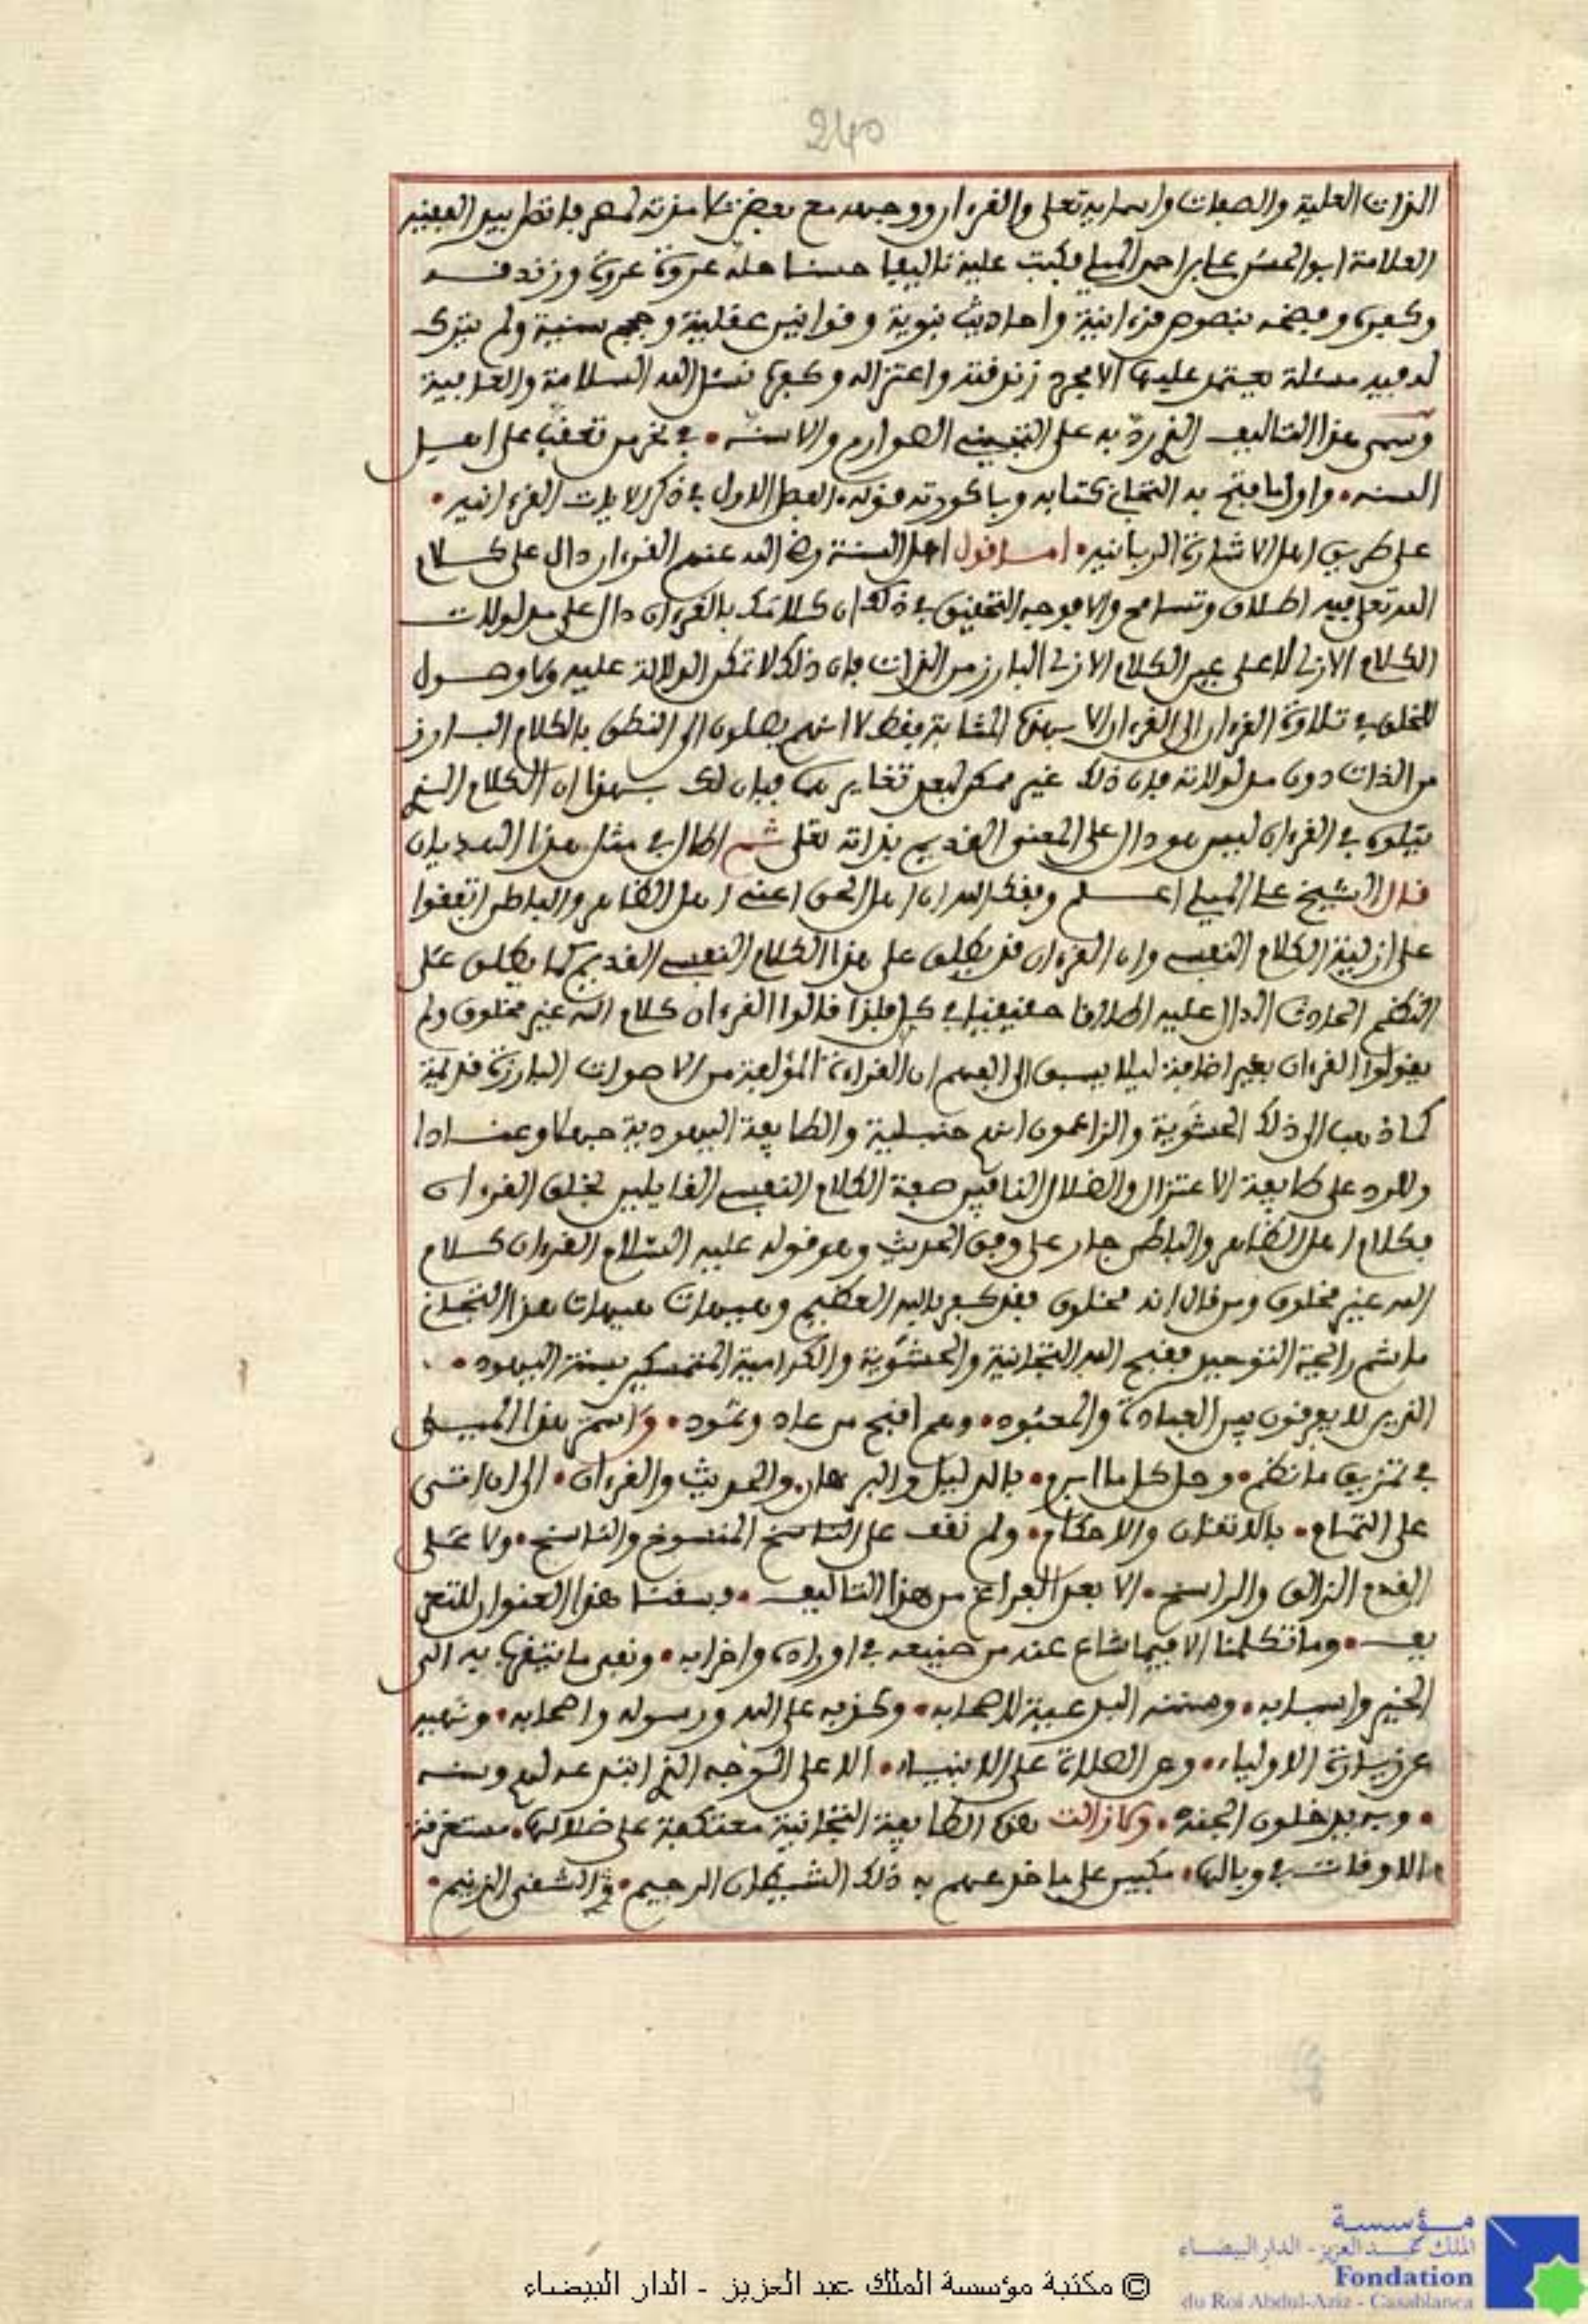 240
الذات العلية والصفات واسمايه تعلى والقرءان ووجهه مع بعض تلامذته لمصر
العلامة ابو الحسن علي بن احمد الميلي فكتب عليه تاليفا حسنا حله عروة عروة وزندقه
وكفره وفضحه بنصوص قرءانية واحاديث نبوية وقوانين عقلية وحجج سنية ولم يترك
له فيه مسئلة يعتمد عليها الا مجرد زندقته واعتزاله وكفره نسئل الله السلامة والعافية
وسمى هذا التاليف الذي رد به على التجيني الصوارم والاسنه • في نحر من تعقب على اهل
السنه • واول ما فتح به التجاني كتابه وباكورته قوله • الفصل الاول في ذكر الايات القرءانيه •
على طريق اهل الاشارة الربانيه • اما قول اهل السنة رضي الله عنهم القرءان دال على كلام
الله تعلى فيه اطلاق وتسامح والا فوجه التحقيق في ذلك ان كلامك بالقرءان دال على مدلولات
الكلام الازلي لا على عين الكلام الازلي البارز من الذات فان ذلك لا تمكن الدلالة عليه وما وصول
للخلق في تلاوة القرءان الى القرءان الا بهذه المشابة فقط لا انهم يصلون الى النطق بالكلام البارز
من الذات دون مدلولاته فان ذلك غير ممكن لبعد تغايرهما فبان لك بهذا ان الكلام الذي
يتلوه في القرءان ليس هو دال على المعنى القديم بذاته تعلى ثم اطال في مثل هذا الهذيان
قال الشيخ علي الميلي اعلم وفقك الله ان اهل الحق اعني اهل الظاهر والباطن اتفقوا
على ازلية الكلام النفسي وان القرءان قد يطلق على هذا الكلام النفسي القديم كما يطلق على
النظم الحادث الدال عليه اطلاقا حقيقيا في كل فلذا قالوا القرءان كلام الله غير مخلوق ولم
يقولوا القرءان بغير اضافة ليلا يسبق الى الفهم ان القراءة المؤلفة من الاصوات البارزة قديمة
كما ذهب الى ذلك الحشوية والزاعمون انهم حنبلية والطايفة اليهودية جهلا وعنادا
وللرد على طايفة الاعتزال والضلال النافين صفة الكلام النفسي القايلين بخلق القرءان
فكلام اهل الظاهر والباطن جار على وفق الحديث وهو قوله عليه السلام القرءان كلام
الله غير مخلوق ومن قال انه مخلوق فقد كفر بالله العظيم وهيهات هيهات هذا التجاني
ما شم رايحة التوحيد فقبح الله التجانية والحشوية والكرامية المتمسكين بسنة اليهود •
الذين لا يعرفون بين العبادة والمعبود • وهم اقبح من عاد وثمود • واستمر هذا الميلي
في تمزيق ما نظم • وحل كل ما ابرم • بالدليل والبرهان والحديث والقرءان • الى ان اتى
على التمام • بالاتقان والاحكام • ولم نقف على الناسخ المنسوخ والناسخ • ولا على
القدم الزالق والراسخ • الا بعد الفراغ من هذا التاليف • وبسقنا هذا العنوان للتعر
يف • وما تكلمنا الا فيما شاع عنه من صنيعه في اوراده واحزابه • ونفيه ما يتقرب به الى
الخير واسبابه • وضمنه الجنة لاصحابه • وكذبه على الله ورسوله واصحابه • ونهيه
عن زيارة الاولياء • وعن الصلاة على الانبياء • الا على الوجه الذي ابتدعه لهم وسنه
• وبه يدخلون الجنه • وما زالت هذه الطايفة التجانية معتكفة على ضلالها • مستغرقة
الاوقات في وبالها • مكبين على ما خدعهم به ذلك الشيطان الرجيم • والشقي الذميم •
© مكتبة مؤسسة الملك عبد العزيز - الدار البيضاء
مؤسسة
الملك عبد العزيز - الدار البيضاء
Fondation
du Roi Abdul-Aziz - Casablanca